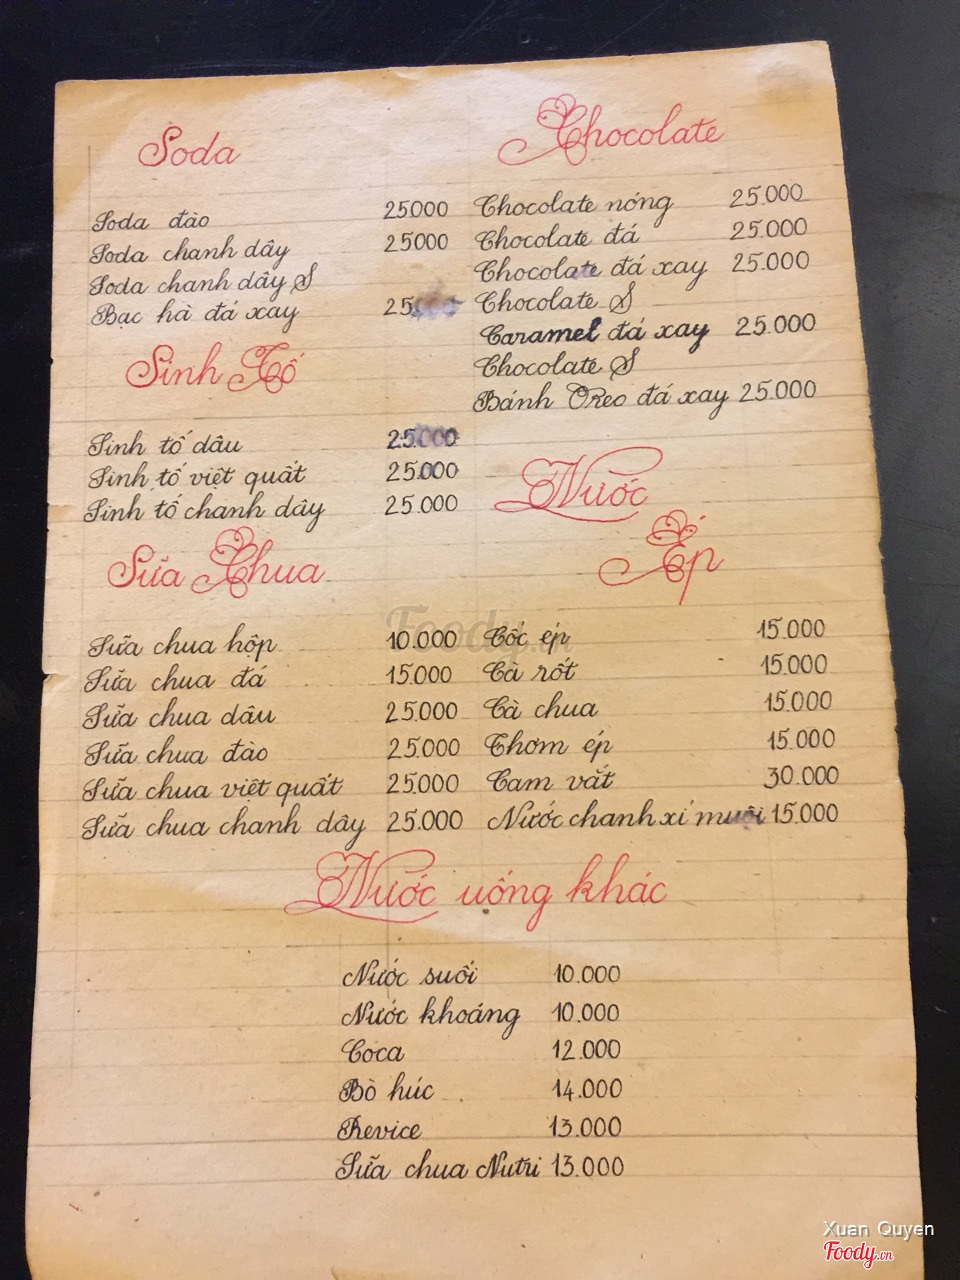 Soda
Soda đào 25000
Soda chanh dây 25000
Soda chanh dây &
Bạc hà đá xay 25.000
Sinh Tố
Sinh tố dâu 25.000
Sinh tố việt quất 25.000
Sinh tố chanh dây 25.000
Sữa Chua
Sữa chua hộp 10.000
Sữa chua đá 15.000
Sữa chua dâu 25.000
Sữa chua đào 25.000
Sữa chua việt quất 25.000
Sữa chua chanh dây 25.000
Chocolate
Chocolate nóng 25.000
Chocolate đá 25.000
Chocolate đá xay 25.000
Chocolate &
Caramel đá xay 25.000
Chocolate &
Bánh Oreo đá xay 25.000
Nước
Ép
Cốc ép 15.000
Cà rốt 15.000
Cà chua 15.000
Thơm ép 15.000
Cam vắt 30.000
Nước chanh xí muội 15.000
Nước uống khác
Nước suối 10.000
Nước khoáng 10.000
Coca 12.000
Bò húc 14.000
Revice 13.000
Sữa chua Nutri 13.000
Foody.vn
Xuan Quyen
Foody.vn